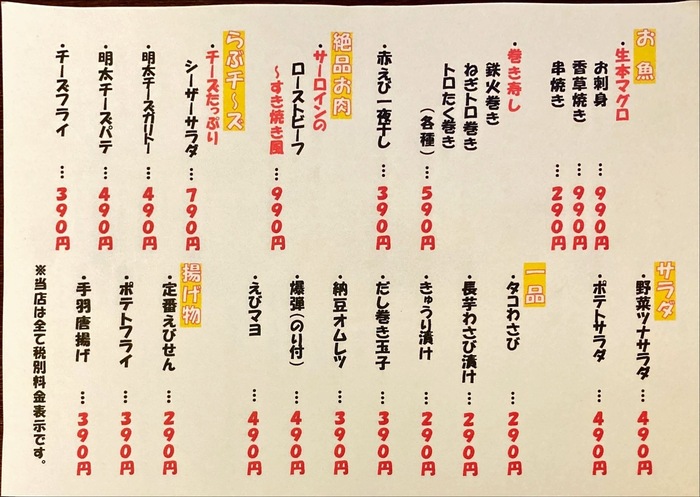 お魚
・生本マグロ
お刺身 … 990円
香草焼き … 990円
串焼き … 290円
・巻き寿し
鉄火巻き
ねぎトロ巻き
トロたく巻き
（各種） … 590円
・赤えび一夜干し … 390円
絶品お肉
・サーロインの
ローストビーフ
～すき焼き風 … 990円
らぶチ～ズ
・チーズたっぷり
シーザーサラダ … 790円
・明太チーズガリトー … 490円
・明太チーズパテ … 490円
・チーズフライ … 390円
サラダ
・野菜ツナサラダ … 490円
・ポテサラダ … 490円
一品
・タコわさび … 290円
・長芋わさび漬け … 290円
・きゅうり漬け … 290円
・だし巻き玉子 … 390円
・納豆オムレツ … 390円
・爆弾（のり付） … 490円
・えびマヨ … 490円
揚げ物
・定番えびせん … 290円
・ポテトフライ … 390円
・手羽唐揚げ … 390円
※当店は全て税別料金表示です。